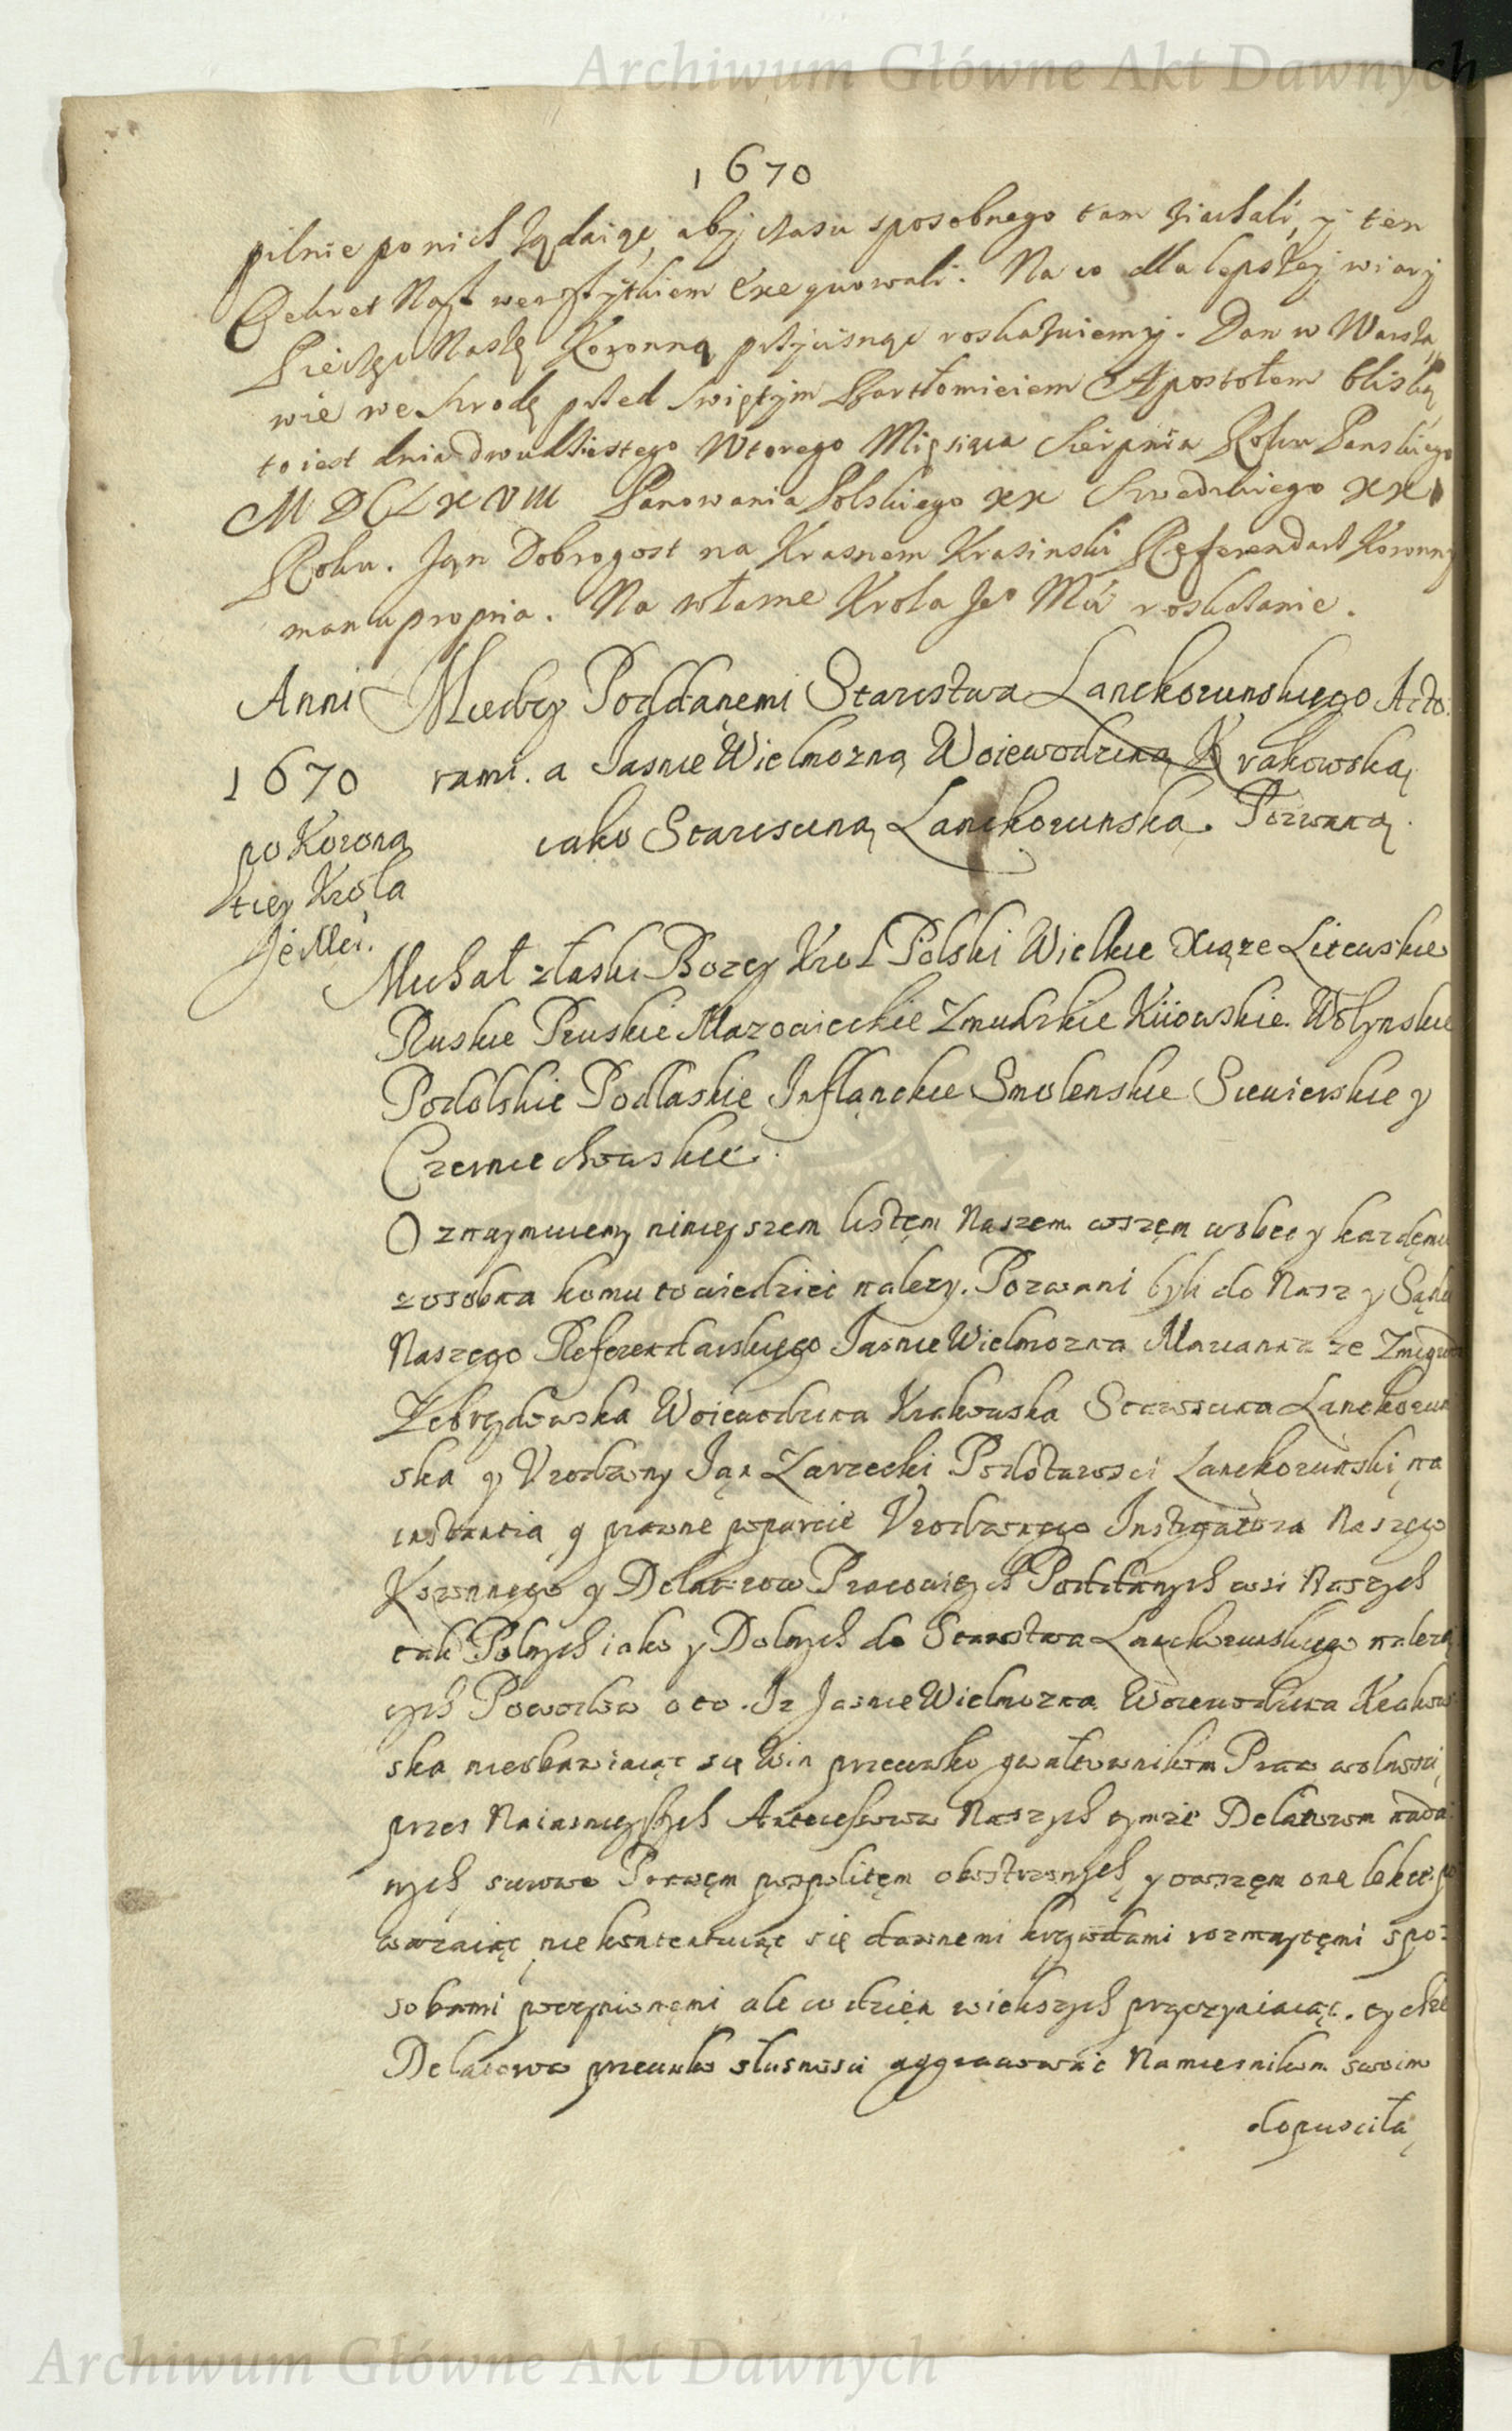 Archiwum Główne Akt Dawnych
1670
pilnie po nich żądaiąc, aby czasu sposobnego tam ziachali, y ten
Dekret Nasz we wszytkiem exequowali. Na co dla lepszey wiary
Pieczęć Naszę Koronną przycisnąc roskazuiemy. Dan w Warsza
wie we Srodę przed Swiętym Bartłomieiem Apostołem bliską
to iest dnia dwudziestego Wtorego Miesiąca Sierpnia Roku Panskiego
MDCLXVIII Panowania Polskiego XX Szwedzkiego XXI
Roku. Jan Dobrogost na Krasnem Krasinski Referendarz Koronny
manu propria. Na własne Krola Jeo Mci roskazanie.
Anni
1670
po Korona
tiey Krola
Je Mci.
Miedzy Poddanemi Starostwa Lanckorunskiego Acto
rami. a Jasnie Wielmozną Woiewodziną Krakowską
iako Starosciną Lanckorunską. Pozwaną.
Michał z łaski Bozey Krol Polski Wielkie Xiąze Litewskie
Ruskie Pruskie Mazowieckie Zmudzkie Kiiowskie Wołynskie
Podolskie Podlaskie Inflanckie Smolenskie Siewierskie y
Czerniechowskie.
Oznaymuiemy ninieyszem listem Naszem wszem wobec y kazdemu
zosobna komu to wiedziec nalezy. Pozwani byli do Nas y Sądu
Naszego Referendarskiego Jasnie Wielmozna Marianna ze Zmigroda
Zebrzydowska Woiewodzina Krakowska Staroscina Lanckorun
ska y Urodzony Jan Zarzecki Podstarosci Lanckorunski na
instantią y prawne poparcie Urodzonego Instigatora Naszego
Koronnego y Delatorow Pracowitych Poddanych wsi Naszych
tak Polnych iako y Dolnych do Starostwa Lanckorunskiego nalezą
cych Powodow o to. Iz Jasnie Wielmozna Woiewodzina Krakow
ska nieobawiaiąc się Win przeciwko gwałtownikom Praw wolnosci
przes Naiasnieyszych Antecessorow Naszych tymże Delatorom nada
nych surowo Prawem pospolitem obostrzonych y owszem one lekce po
wazaiąc nie kontentuiąc się dawnemi krzywdami rozmaytemi spo-
sobami poczynionemi ale co dzien wiekszych przyczyniaiąc. tychze
Delatorow przeciwko słusnosci aggrawowac Namiesnikom swoim
dopusciła
Archiwum Główne Akt Dawnych